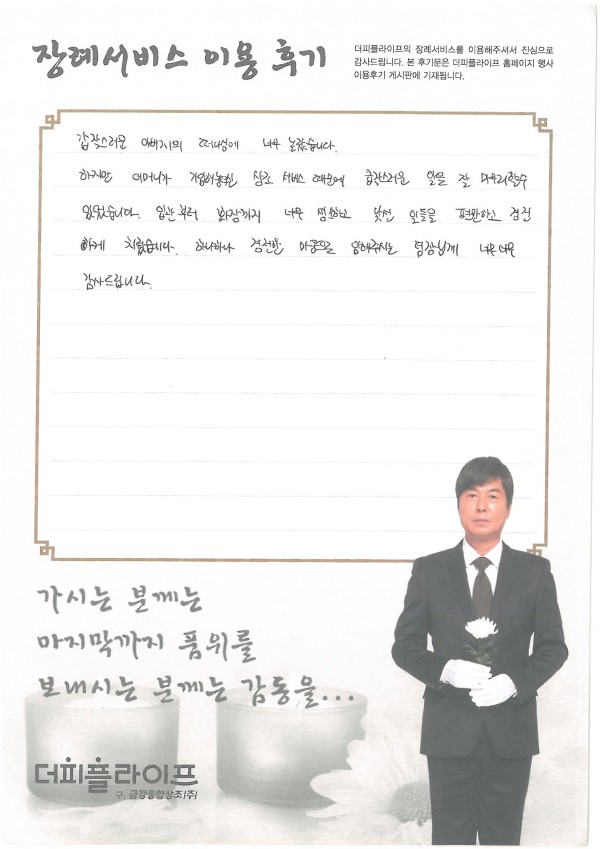 장례서비스 이용 후기
더피플라이프의 장례서비스를 이용해주셔서 진심으로
감사드립니다. 본 후기문은 더피플라이프 홈페이지 행사
이용후기 게시판에 기재됩니다.
갑작스러운 아버지의 떠나심에 너무 놀랐습니다.
하지만 어머니가 가입해놓으신 상조 서비스 때문에 갑작스러운 일을 잘 마무리할수
있었습니다. 입관부터 화장까지 너무 세심하고 낯선 일들을 편안하고 경건
하게 치뤘습니다. 하나하나 경건한 마음으로 임해주시는 팀장님께 너무너무
감사드립니다.
가시는 분께는
마지막까지 품위를
보내시는 분께는 감동을...
더피플라이프
구. 금강종합상조(주)